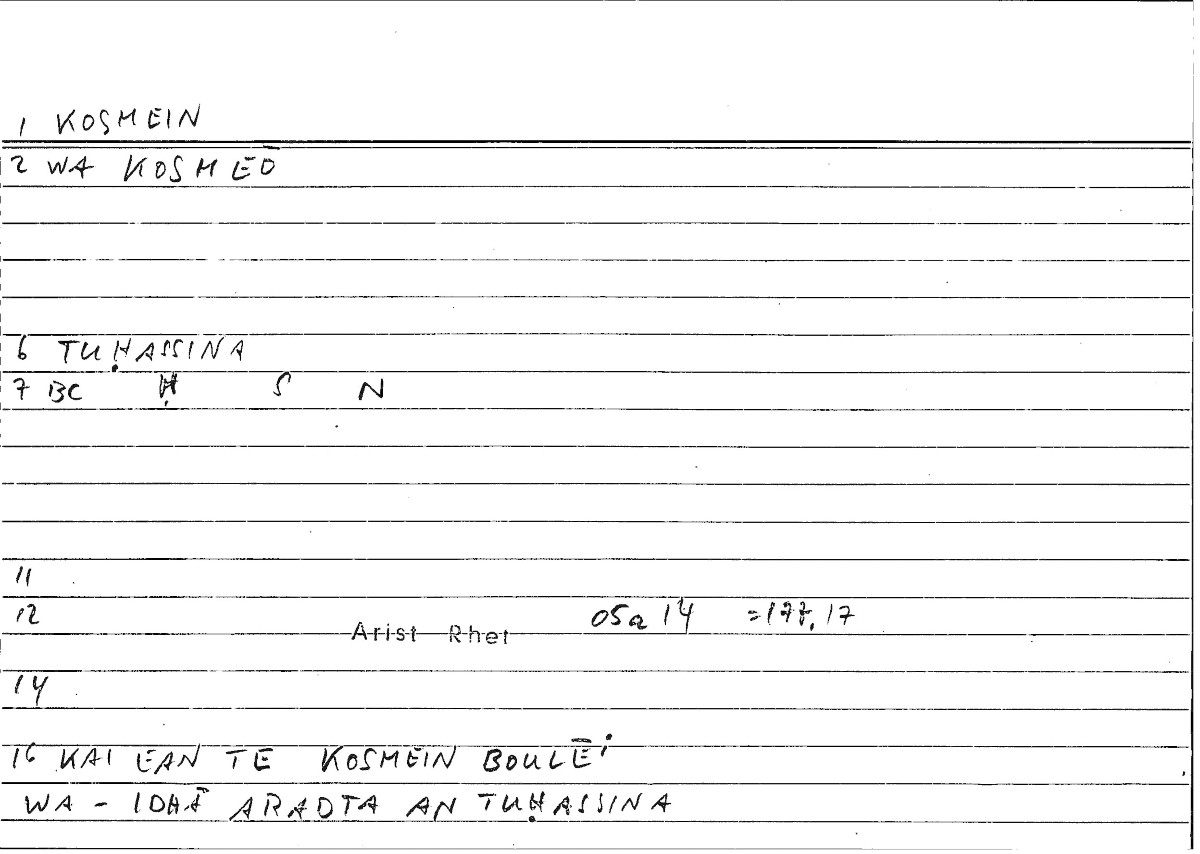 1 KOSMEIN
2 WA KOSMEŌ
6 TUḤASSINA
7 BC Ḥ S N
11
12 Arist Rhet 05a 14 =177,17
14
16 KAI EAN TE KOSMEIN BOULĒi
WA - IDHĀ ARADTA AN TUḤASSINA